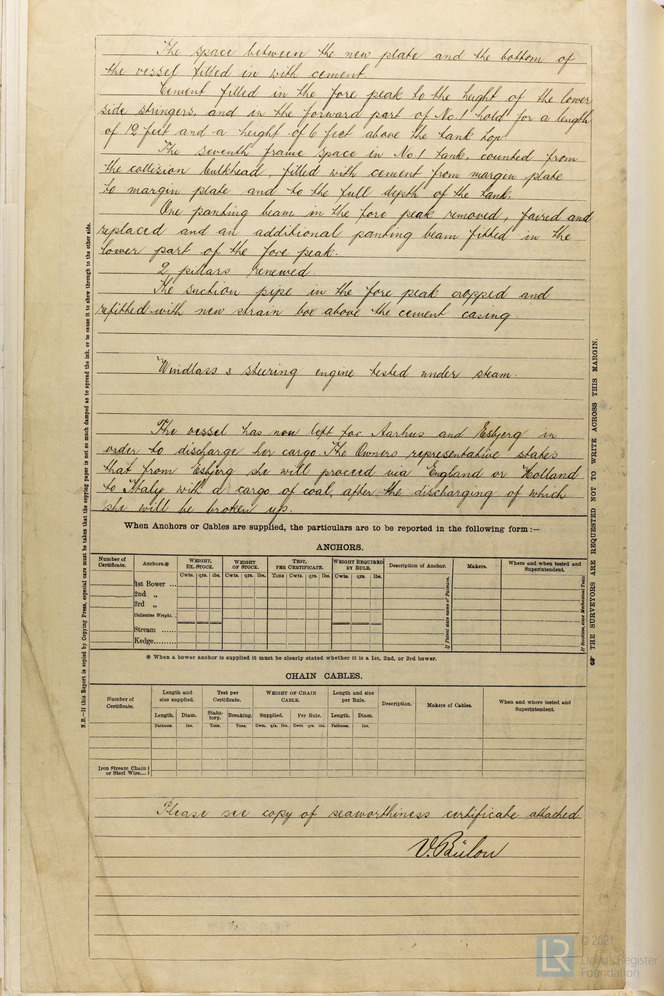 The space between the new plate and the bottom of
the vessel filled in with cement.
Cement filled in the fore peak to the height of the lower
side stringers, and in the forward part of No 1 hold for a length
of 12 feet and a height of 6 feet above the tank top.
The seventh frame space in No 1 tank, counted from
the collision bulkhead, filled with cement from margin plate
to margin plate and to the full depth of the tank.
One panting beam in the fore peak removed, faired and
replaced and an additional panting beam fitted in the
lower part of the fore peak.
2 pillars renewed.
The suction pipe in the fore peak cropped and
refitted with new strain box above the cement casing.
Windlass & steering engine tested under steam.
The vessel has now left for Aarhus and Esbjerg in
order to discharge her cargo. The Owners representative states
that from Esbjerg she will proceed via England or Holland
to Italy with a cargo of coal, after the discharging of which
she will be broken up.
When Anchors or Cables are supplied, the particulars are to be reported in the following form:—
ANCHORS.
Number of Certificate. Anchors.* WEIGHT, EX. STOCK. WEIGHT OF STOCK. TEST, PER CERTIFICATE. WEIGHT REQUIRED BY RULE. Description of Anchor. Makers. Where and when tested and Superintendent.
Cwts. qrs. lbs. Cwts. qrs. lbs. Tons Cwts. qrs. lbs. Cwts. qrs. lbs.
1st Bower ...
2nd „
3rd „
Collective Weight.
Stream
Kedge.........
* When a bower anchor is supplied it must be clearly stated whether it is a 1st, 2nd, or 3rd bower.
CHAIN CABLES.
Number of Certificate. Length and size supplied. Test per Certificate. WEIGHT OF CHAIN CABLE. Length and size per Rule. Description. Makers of Cables. When and where tested and Superintendent.
Length. Diam. Statutory. Breaking. Supplied. Per Rule. Length. Diam.
Fathoms. Ins. Tons. Tons. Cwts. qrs. lbs. Cwts. qrs. lbs. Fathoms. Ins.
Iron Stream Chain
or Steel Wire....
Please see copy of seaworthiness certificate attached.
V. Bülow
N.B.—If this Report is copied by Copying Press, especial care must be taken that the copying paper is not so much damped as to spread the ink, or to cause it to show through to the other side.
THE SURVEYORS ARE REQUESTED NOT TO WRITE ACROSS THIS MARGIN.
LR
© 2021
Lloyd's Register
Foundation